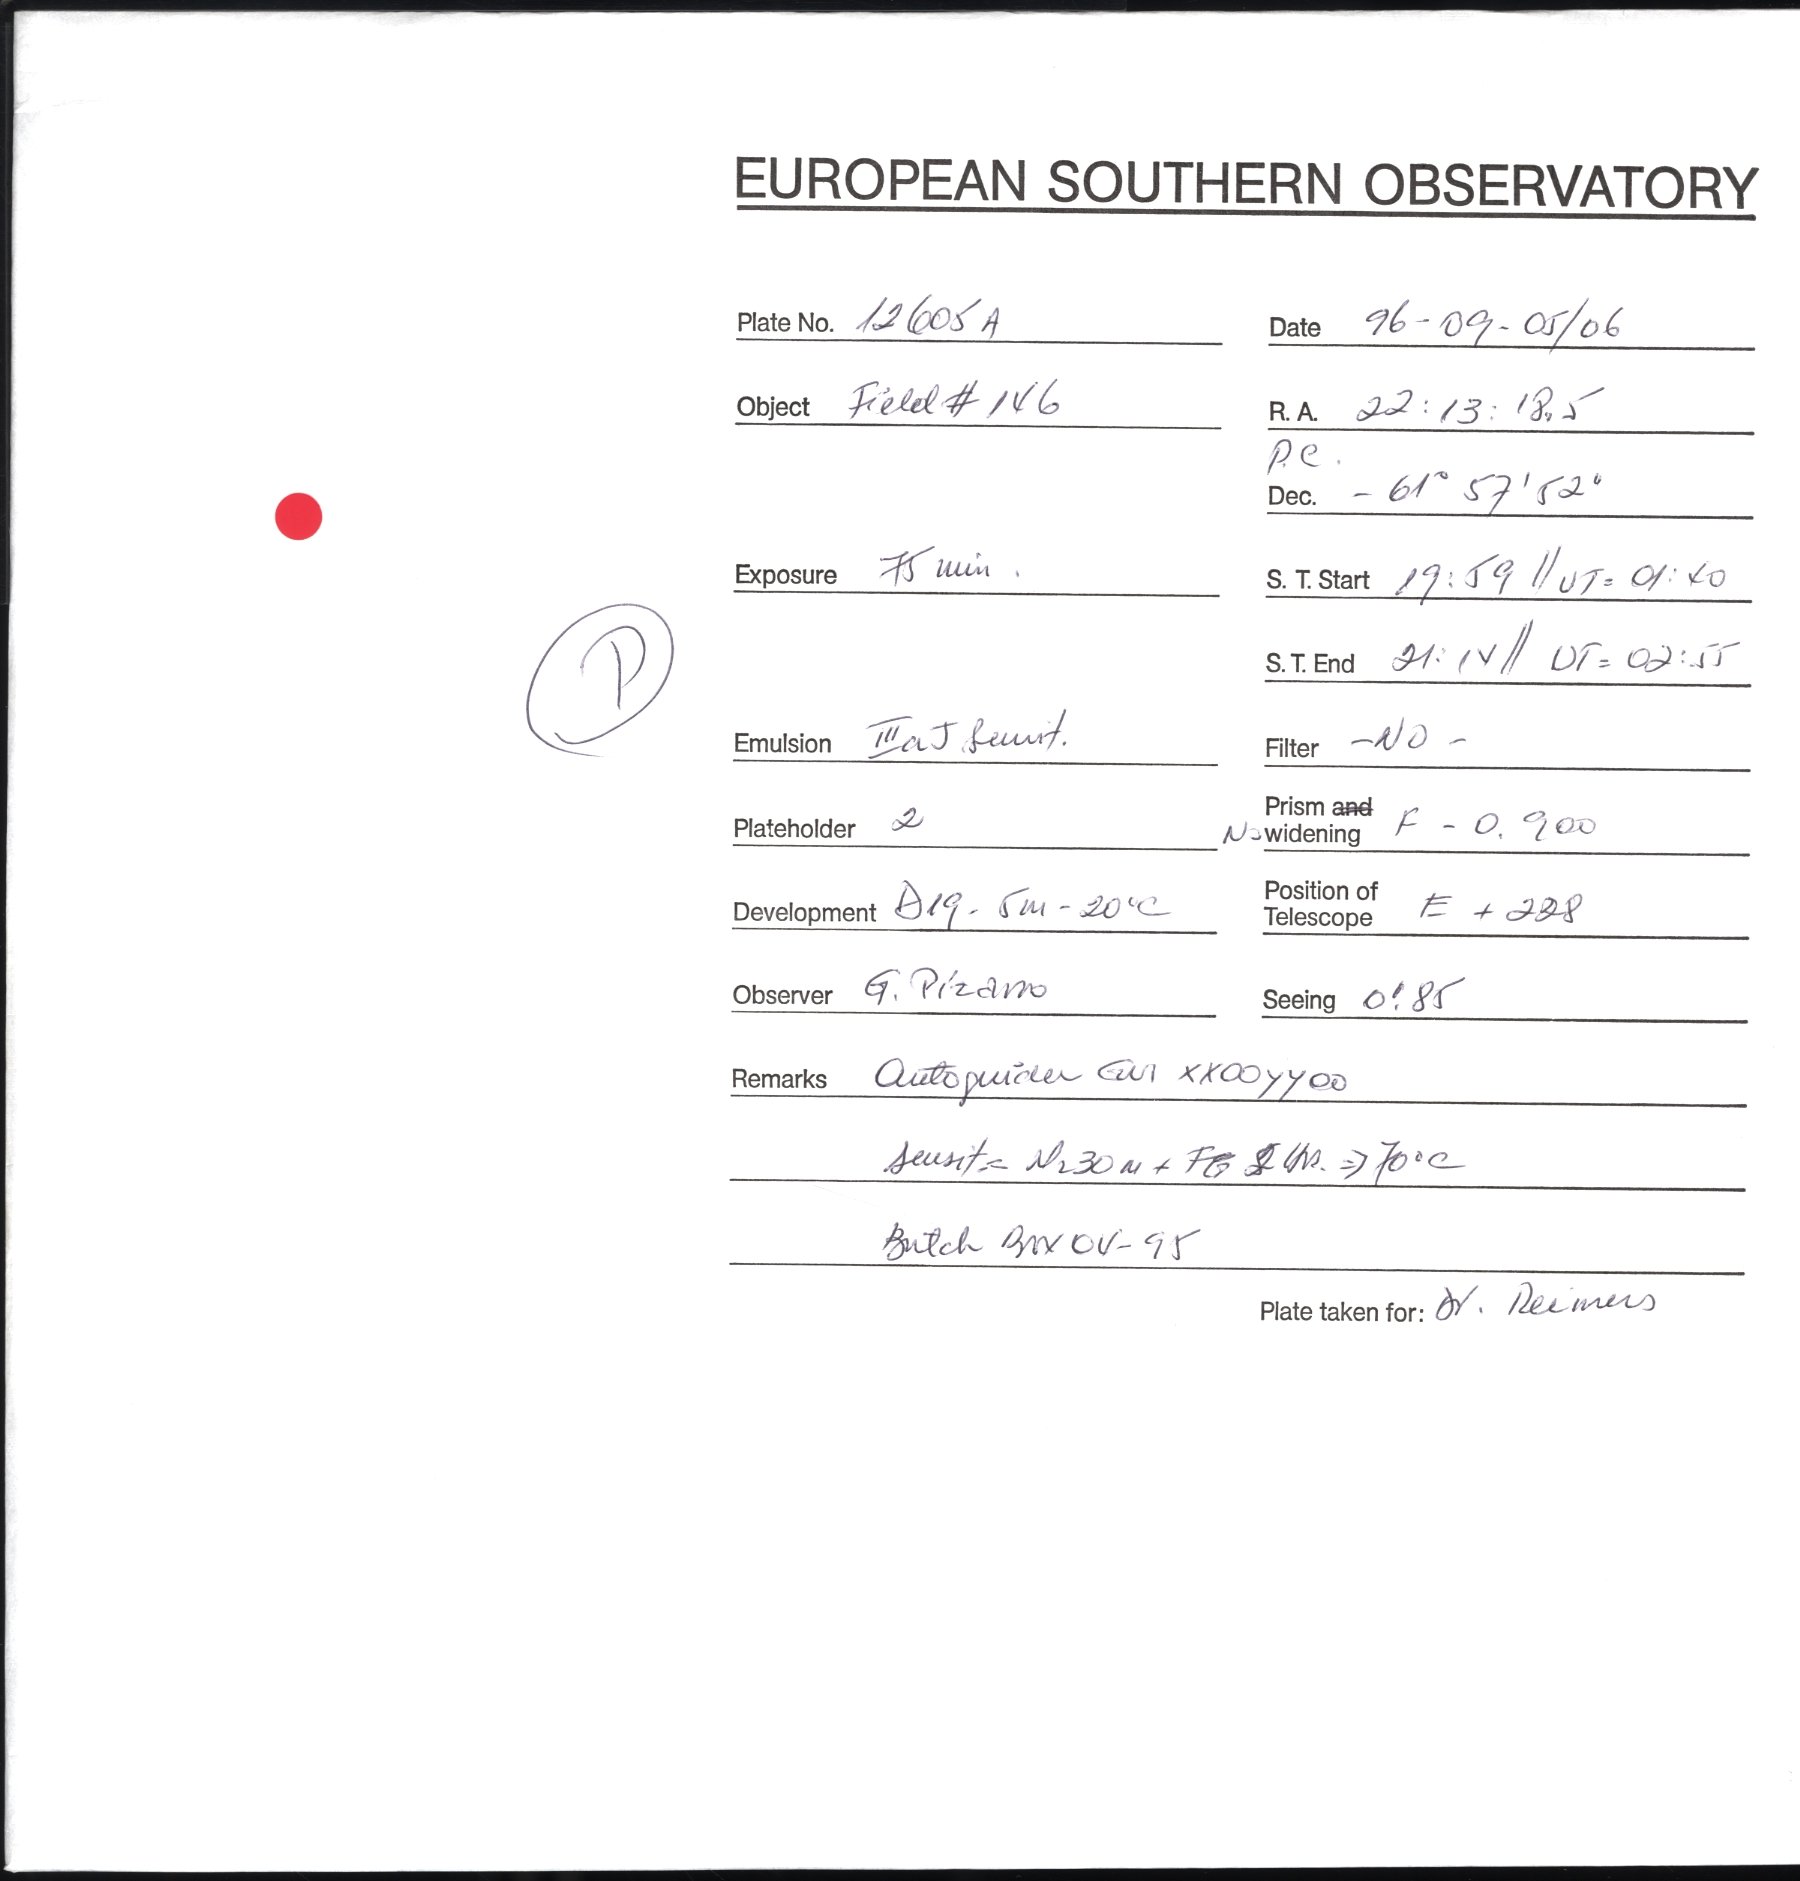 EUROPEAN SOUTHERN OBSERVATORY
Plate No. 12605 A
Date 96-09-05/06
Object Field # 146
R. A. 22:13:18.5
P.C.
Dec. - 61° 57' 52"
Exposure 75 min.
S. T. Start 19:59 // UT= 01:40
P
S. T. End 21:14 // UT= 02:55
Emulsion IIIaJ Sensit.
Filter -NO-
Plateholder 2
Prism and
No widening F - 0.900
Development D19- 5m - 20°C
Position of
Telescope E + 228
Observer G. Pizarro
Seeing 0".85
Remarks Autoguider XX00YY00
Sensit= N2 30m + FG hrs. => 70°C
Batch 0V-95
Plate taken for: Dr. Reimers